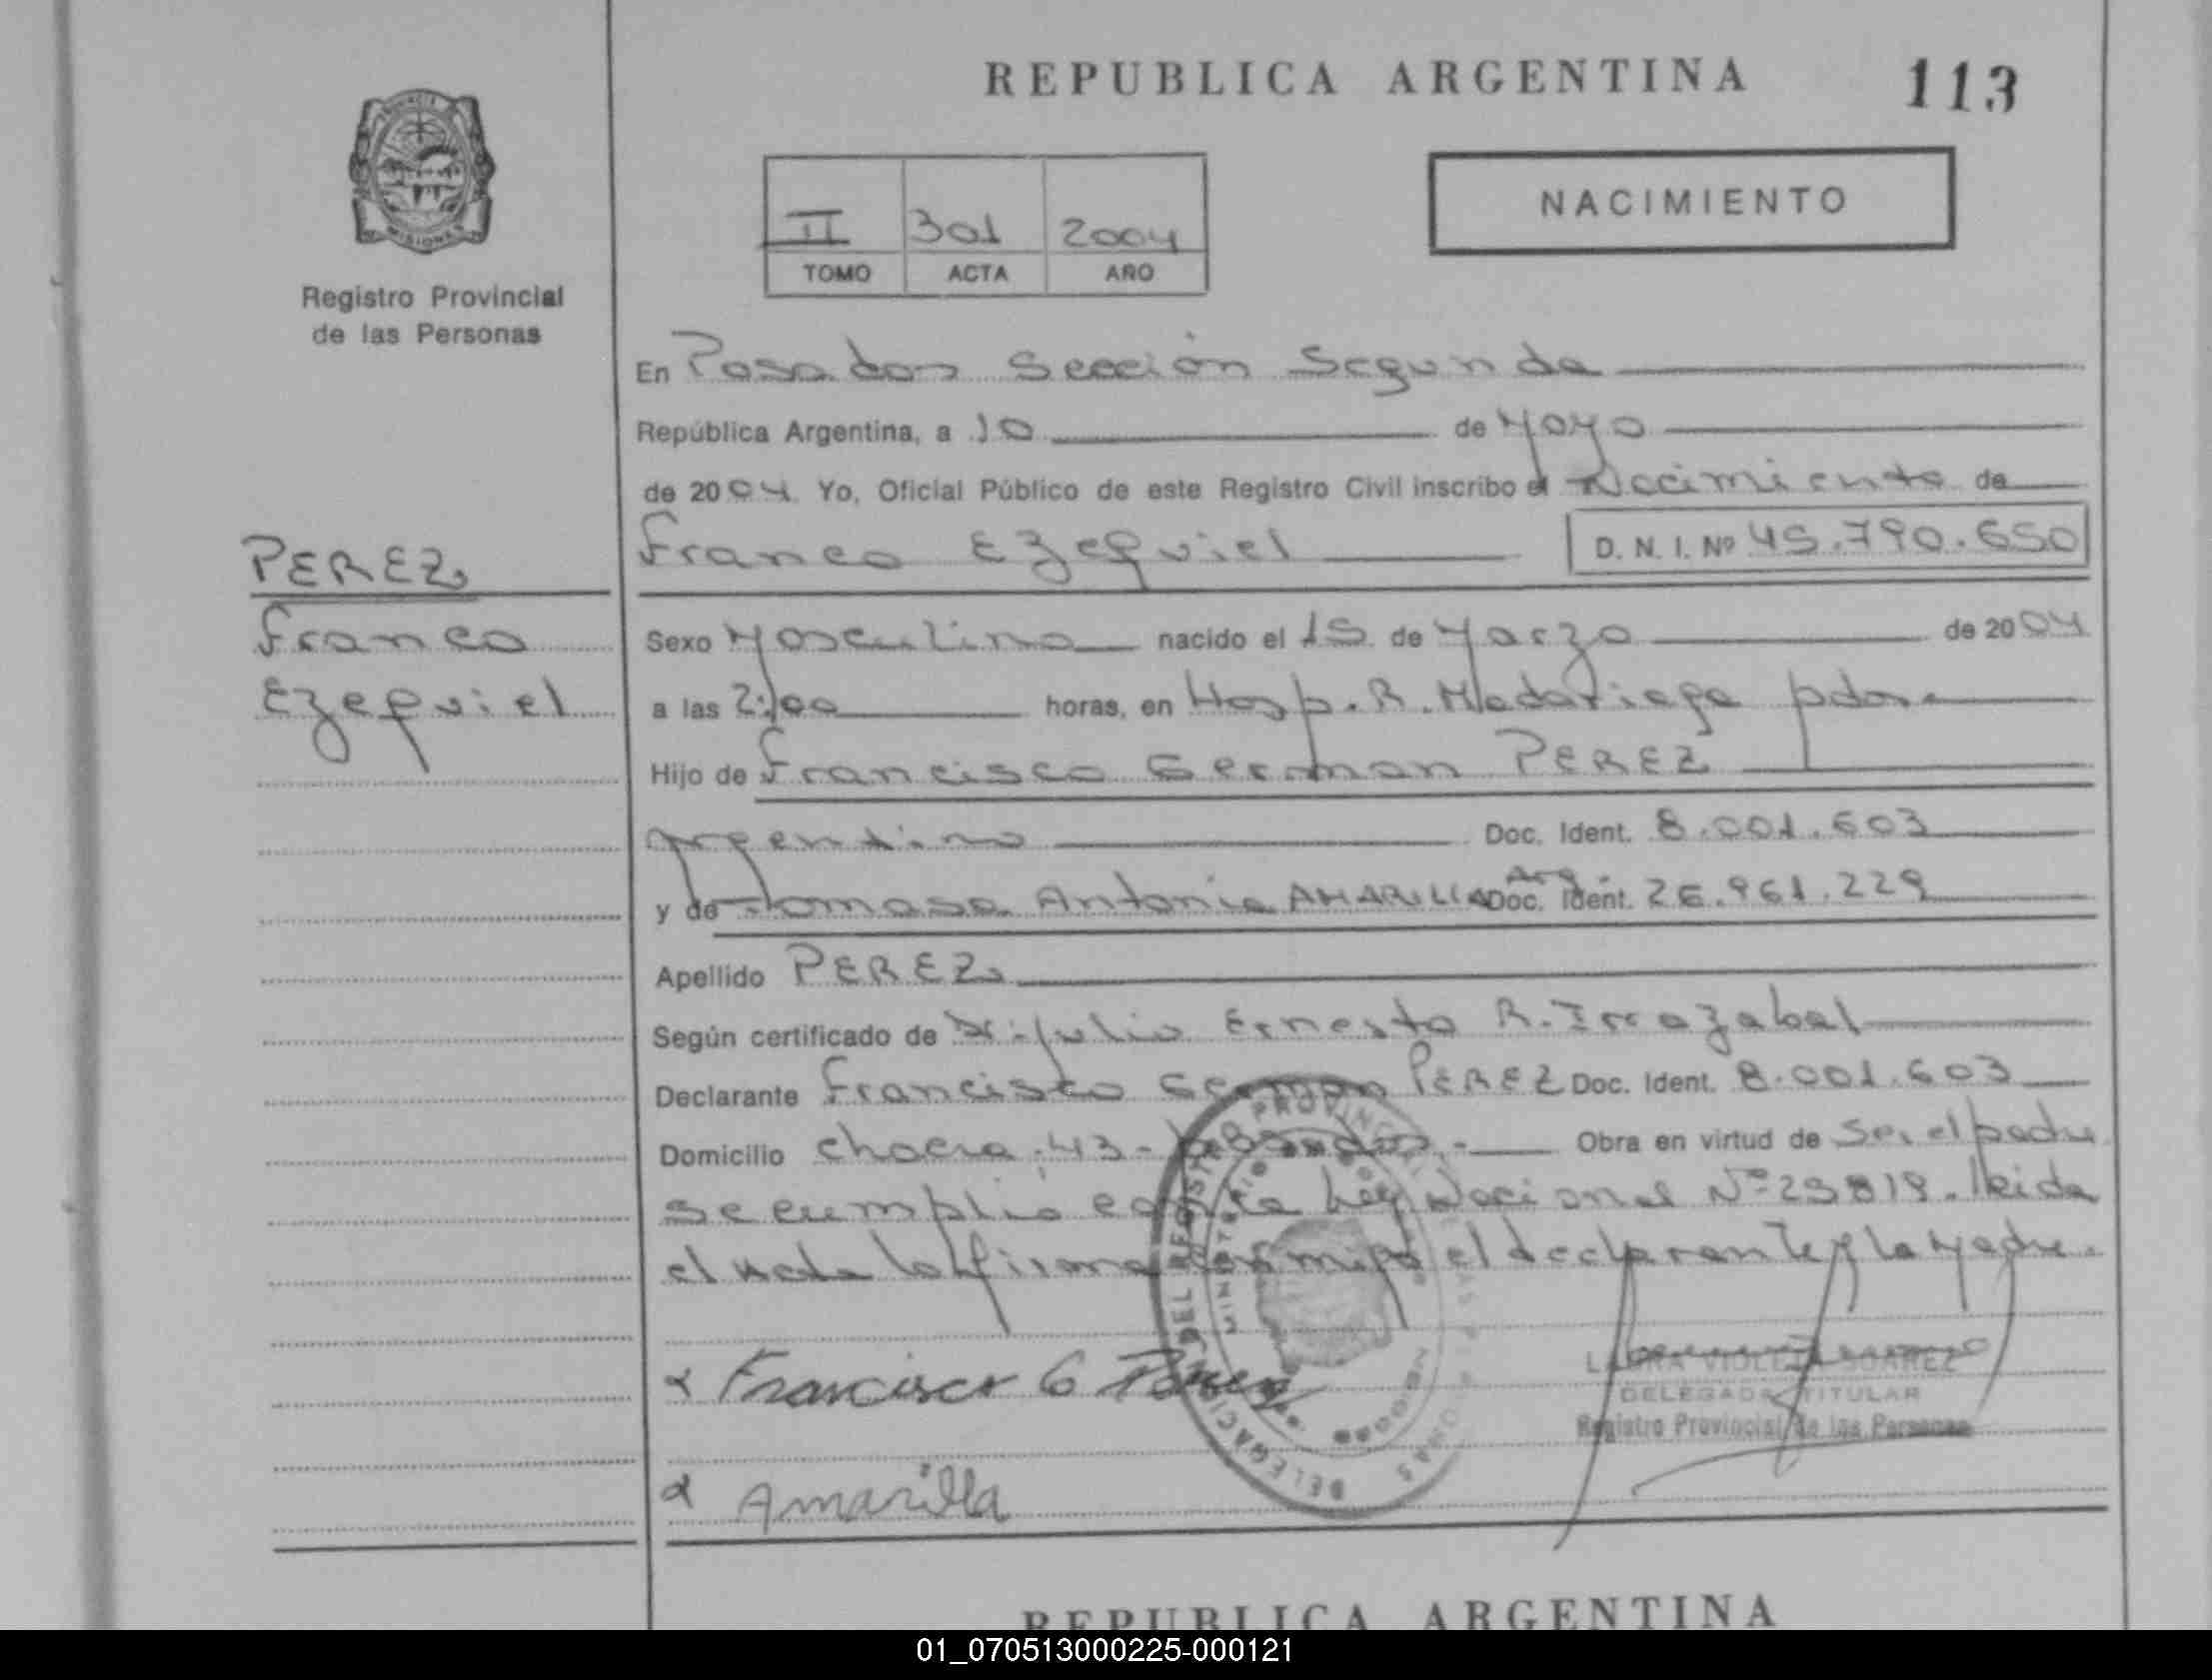 REPUBLICA ARGENTINA
113
PROVINCIA
MISIONES
Registro Provincial
de las Personas
II 301 2004
TOMO ACTA AÑO
NACIMIENTO
En Posadas Sección Segunda
República Argentina, a 10 de Mayo
de 2004. Yo, Oficial Público de este Registro Civil inscribo el Nacimiento de
PEREZ
Franco Ezequiel D. N. I. Nº 45.790.650
Franco
Ezequiel
Sexo Masculino nacido el 15 de Marzo de 2004
a las 2:00 horas, en Hosp. R. Madariaga pdas.
Hijo de Francisco German PEREZ
Argentino Doc. Ident. 8.001.603
y de Tomasa Antonia AMARILLA Arg. Doc. Ident. 26.961.229
Apellido PEREZ
Según certificado de Dr. Julio Ernesto R. Irrazabal
Declarante Francisco German PEREZ Doc. Ident. 8.001.603
Domicilio chacra 43 - Posadas.- Obra en virtud de Ser el padre
se cumplió con la Ley Nacional Nº 25819. leida
el Acta la firma conmigo el declarante y la Madre.
x Francisco G Perez
LAURA VIOLETA SOAREZ
DELEGADA TITULAR
Registro Provincial de las Personas
x Amarilla
DELEGACION DEL REGISTRO PROVINCIAL DE LAS PERSONAS
MINISTERIO
MISIONES
REPUBLICA ARGENTINA
01_070513000225-000121